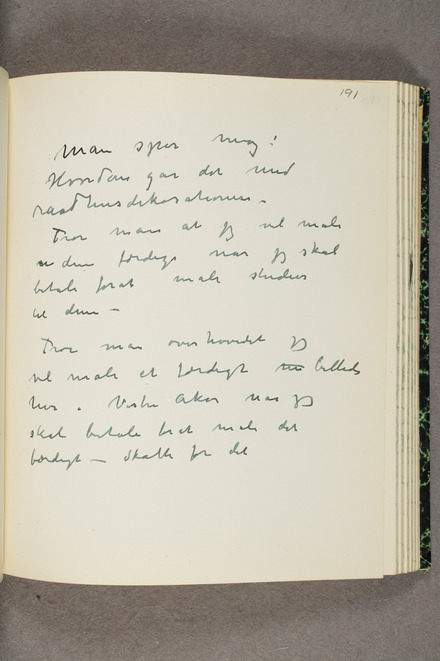 191
Man spør mig:
Hvordan gar det med
raadhusdekorationen –
Tror man at jeg vil male
dem færdige nar jeg skal
betale forat male studier
til dem –
Tror man overhovedet jeg
vil male et færdigt billede
her . Vestre Aker nar jeg
skal betale forat male det
færdigt – skatte for det